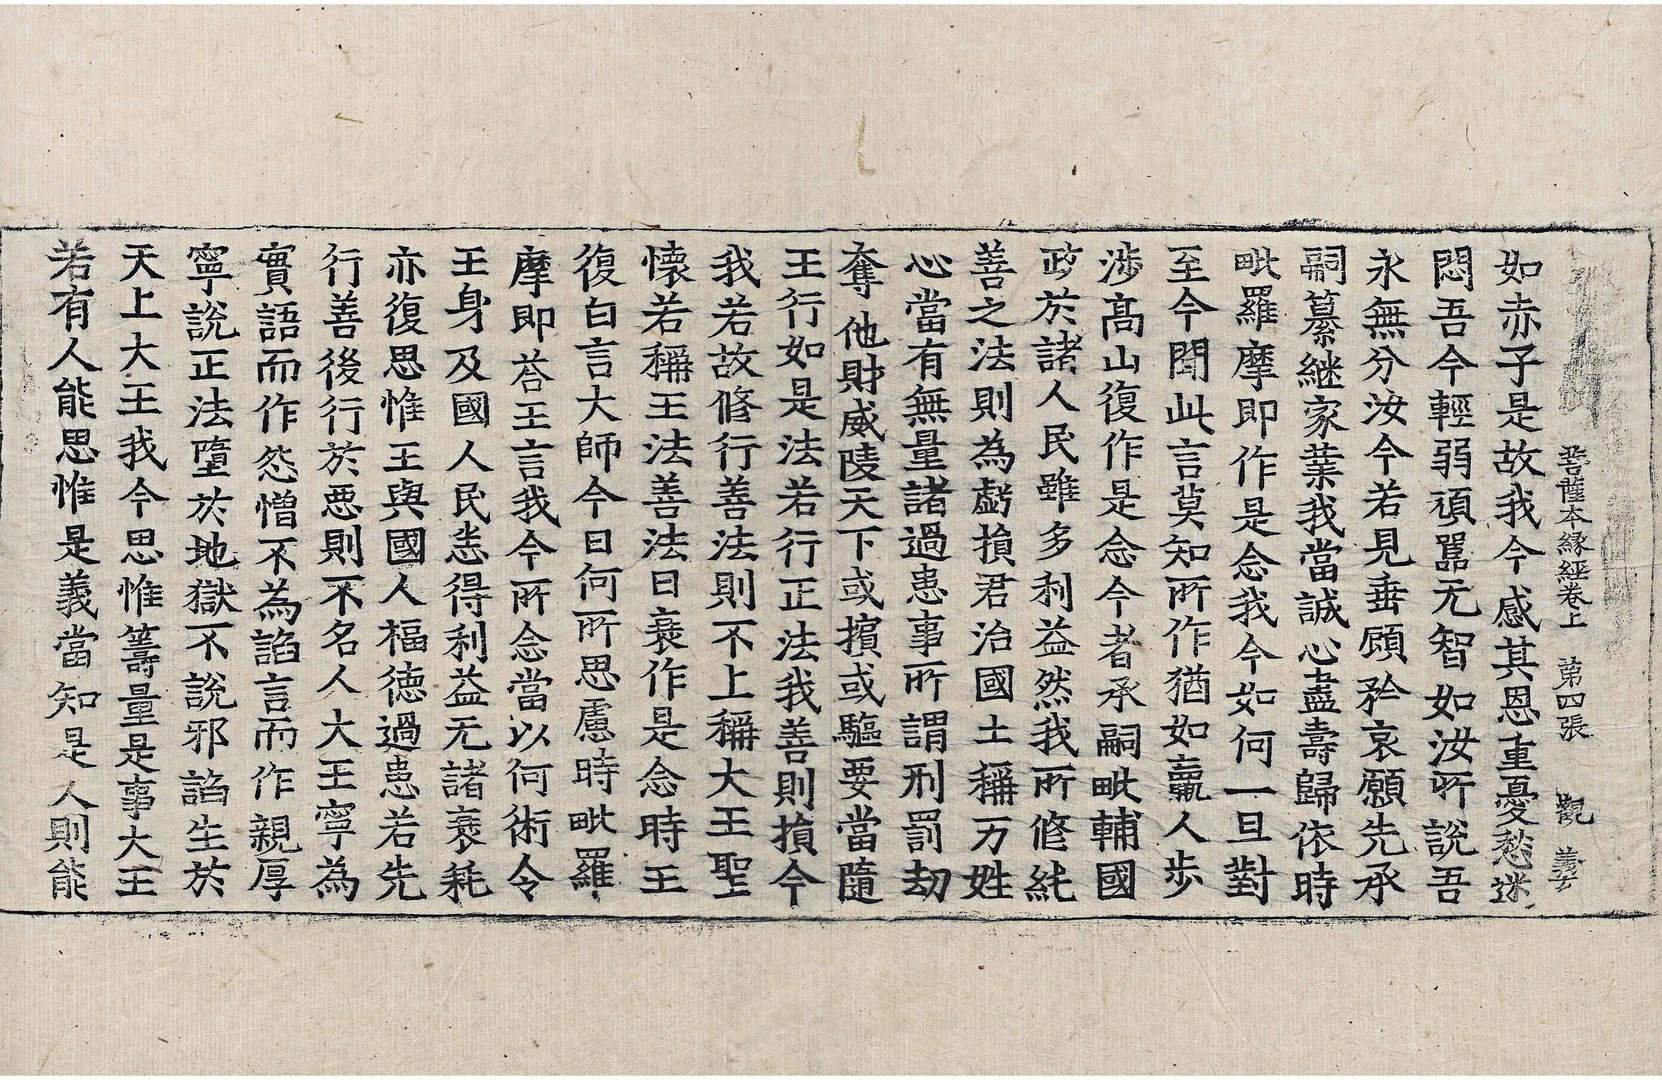 菩薩本緣經卷上 第四張 觀 義
如赤子是故我今感其恩重憂愁迷
悶吾今輕弱頑嚚无智如汝所說吾
永無分汝今若見垂顧矜哀願先承
嗣纂継家業我當誠心盡壽歸依時
毗羅摩即作是念我今如何一旦對
至今聞此言莫知所作猶如羸人步
涉髙山復作是念今者承嗣毗輔國
政於諸人民雖多利益然我所修純
善之法則為虧損君治國土稱万姓
心當有無量諸過患事所謂刑罰劫
奪他財威陵天下或擯或驅要當隨
王行如是法若行正法我善則損今
我若故修行善法則不上稱大王聖
懷若稱王法善法日衰作是念時王
復白言大師今日何所思慮時毗羅
摩即荅王言我今所念當以何術令
王身及國人民悉得利益无諸衰耗
亦復思惟王與國人福德過患若先
行善後行於惡則不名人大王寧為
實語而作怨憎不為諂言而作親厚
寧說正法墮於地獄不說邪諂生於
天上大王我今思惟籌量是事大王
若有人能思惟是義當知是人則能